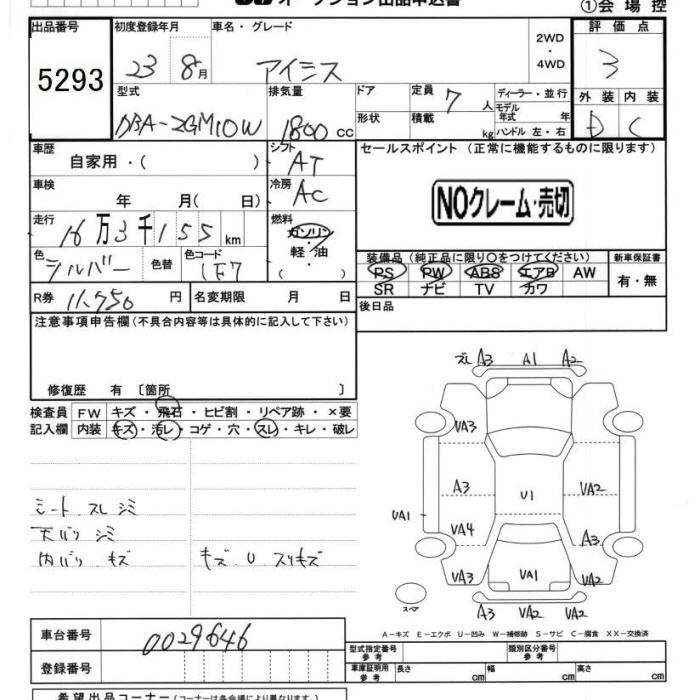 オークション出品申込書
①会場控
出品番号 初度登録年月 車名・グレード 評価点
5293 23 8月 アイシス 2WD ・4WD 3
型式 排気量 ドア 定員 7人 ディーラー・並行 外装 内装
DBA-ZGM10W 1800cc 形状 積載 kg モデル年式 年 ハンドル 左・右 D C
車歴 シフト セールスポイント (正常に機能するものに限ります)
自家用・( ) AT
車検 冷房
年 月( 日) AC NOクレーム・売切
走行 燃料
16万3千155km ガソリン・
軽・油
( )
色 シルバー 色替 色コード 1F7
装備品 (純正品に限り○をつけてください) 新車保証書
PS PW ABS エアB AW 有・無
SR ナビ TV カワ
R券 11,750円 名変期限 月 日 後日品
注意事項申告欄 (不具合内容等は具体的に記入して下さい)
修復歴 有 〔箇所 〕
検査員 FW キズ・飛石・ヒビ割・リペア跡・×要
記入欄 内装 キズ・汚レ・コゲ・穴・スレ・キレ・破レ
シート スレ シミ
天バリ シミ
内バリ キズ キズ U スリキズ
ズレ A3 A1 A2
VA3
A3 U1 VA2
UA1
VA4 A3
VA3 VA1 VA2
スペア
A3 VA2 VA2
A－キズ E－エクボ U－凹み W－補修跡 S－サビ C－腐食 XX－交換済
車台番号 0029646
登録番号
型式指定番号 参考 類別区分番号 参考
車庫証明用 参考 長さ cm 幅 cm 高さ cm
希望出品コーナー (コーナーは各会場により異なります)